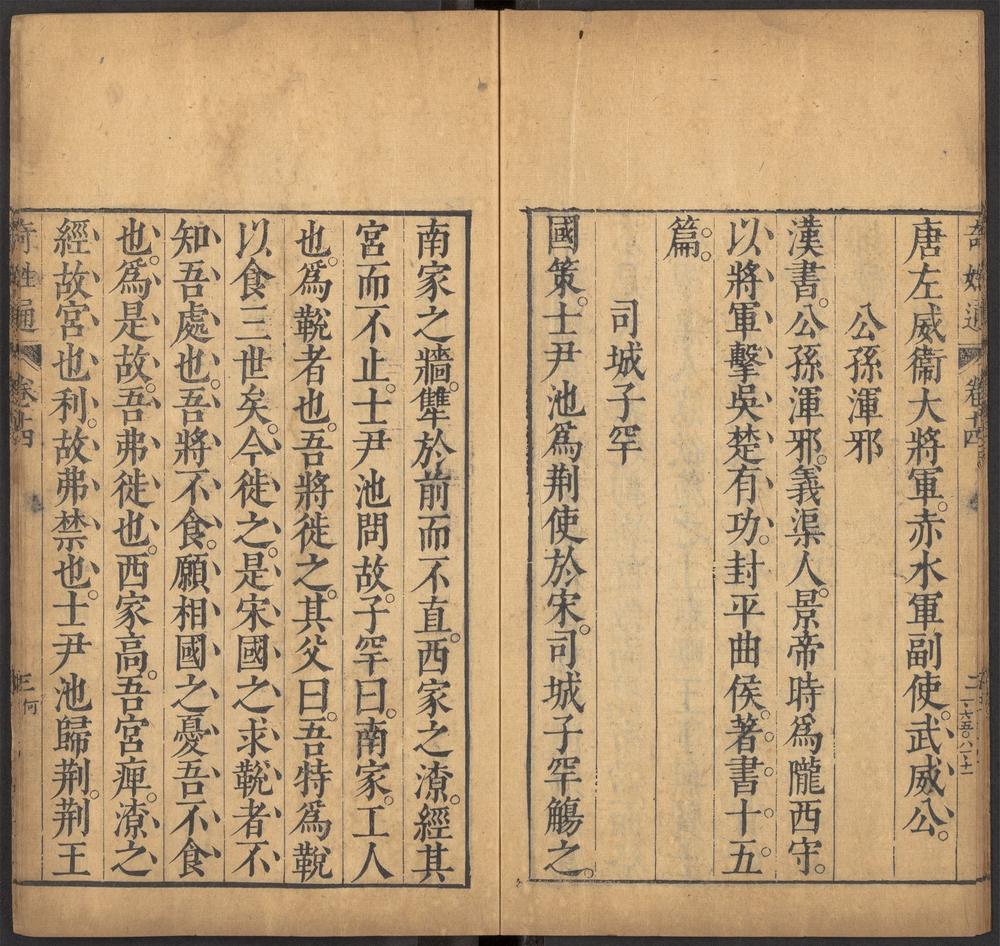 奇姓通 卷十四 二
唐左威衞大將軍。赤水軍副使。武威公。
公孫渾邪
漢書。公孫渾邪。義渠人。景帝時爲隴西守。
以將軍擊吳楚有功。封平曲侯。著書十五
篇。
司城子罕
國策。士尹池爲荆使於宋。司城子罕觴之。
南家之牆。犨於前而不直。西家之潦。經其
宮而不止。士尹池問故。子罕曰。南家。工人
也。爲鞔者也。吾將徙之。其父曰。吾特爲鞔
以食三世矣。今徙之。是宋國之求鞔者不
知吾處也。吾將不食。願相國之憂吾不食
也。爲是故。吾弗徙也。西家高。吾宮庳。潦之
經故宮也。利。故弗禁也。士尹池歸荆。荆王
奇姓通 卷十四 三 何